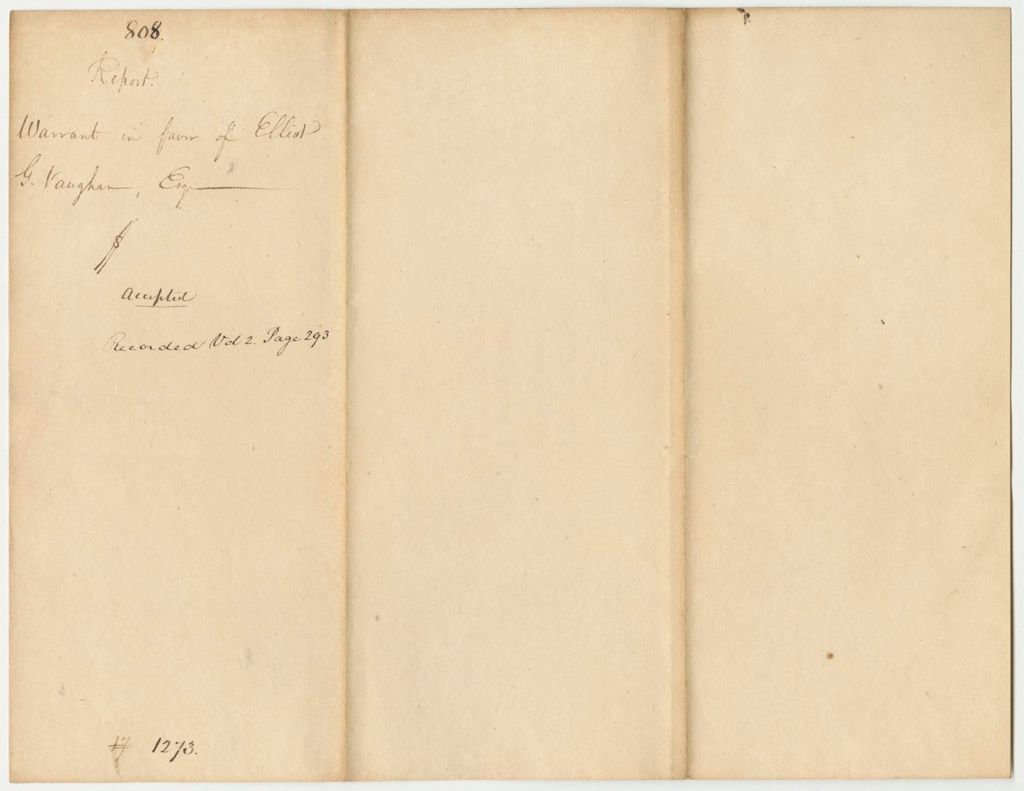 808.
Report.
Warrant in favor of Elliot
G. Vaughan, Esq
Accepted
Recorded Vol 2. Page 293
17 1273.